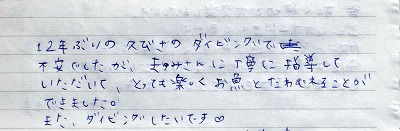 12年ぶりの久びさのダイビングで
不安でしたが、まゆみさんに丁寧に指導して
いただいて、とっても楽しくお魚とたわむれることが
できました。
また、ダイビングしたいです♡